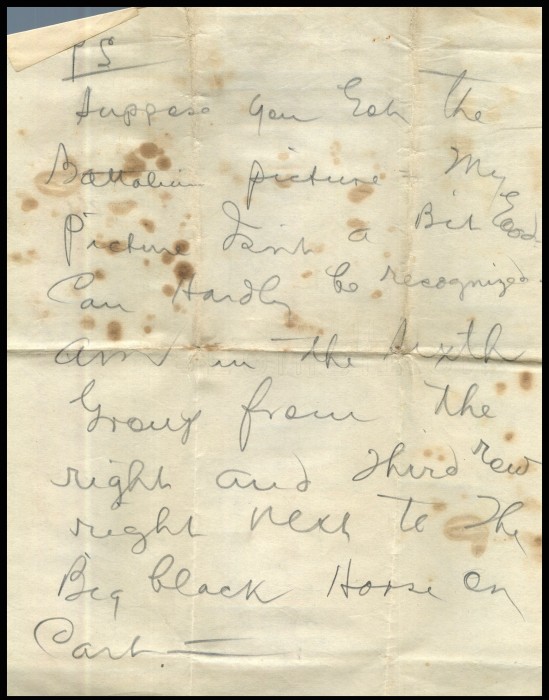 PS
Suppose you Got the
Battalion picture = My
Picture Isn't a Bit Good
Can Hardly be recognized
am in the sixth
Group from the
right and third row
right next to the
Big black Horse on
Cart.